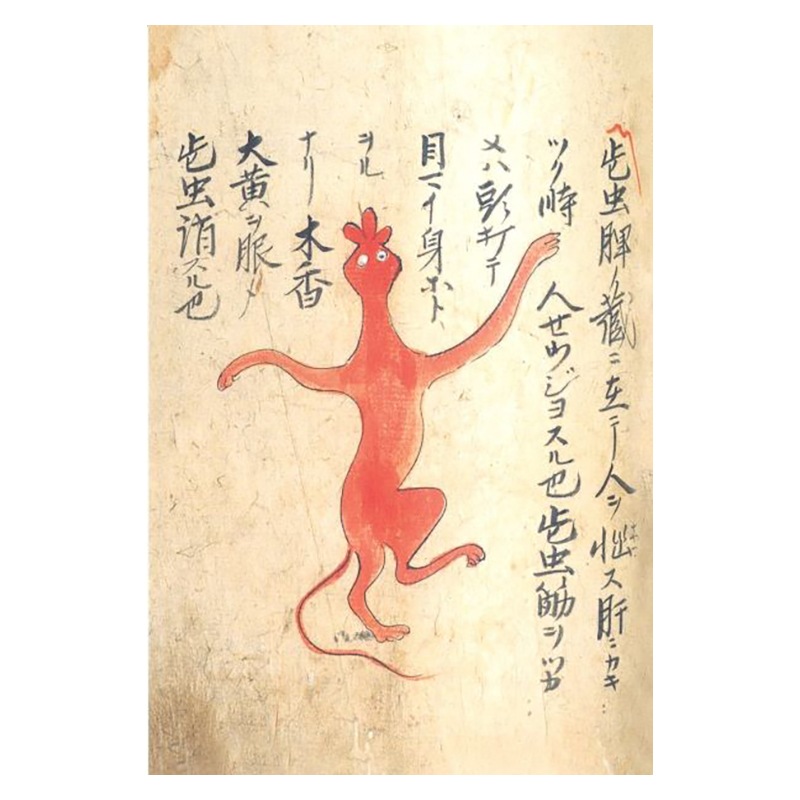 此虫脾ノ蔵ニ在テ人ヲ悩ス肝ニカキ
ツク時 人セウジヨスル也此虫筋ヲツカ
メハ頭打テ
目マイ身ホト
ヲル
ナリ 木香
大黄ヲ服メ
此虫消スル也